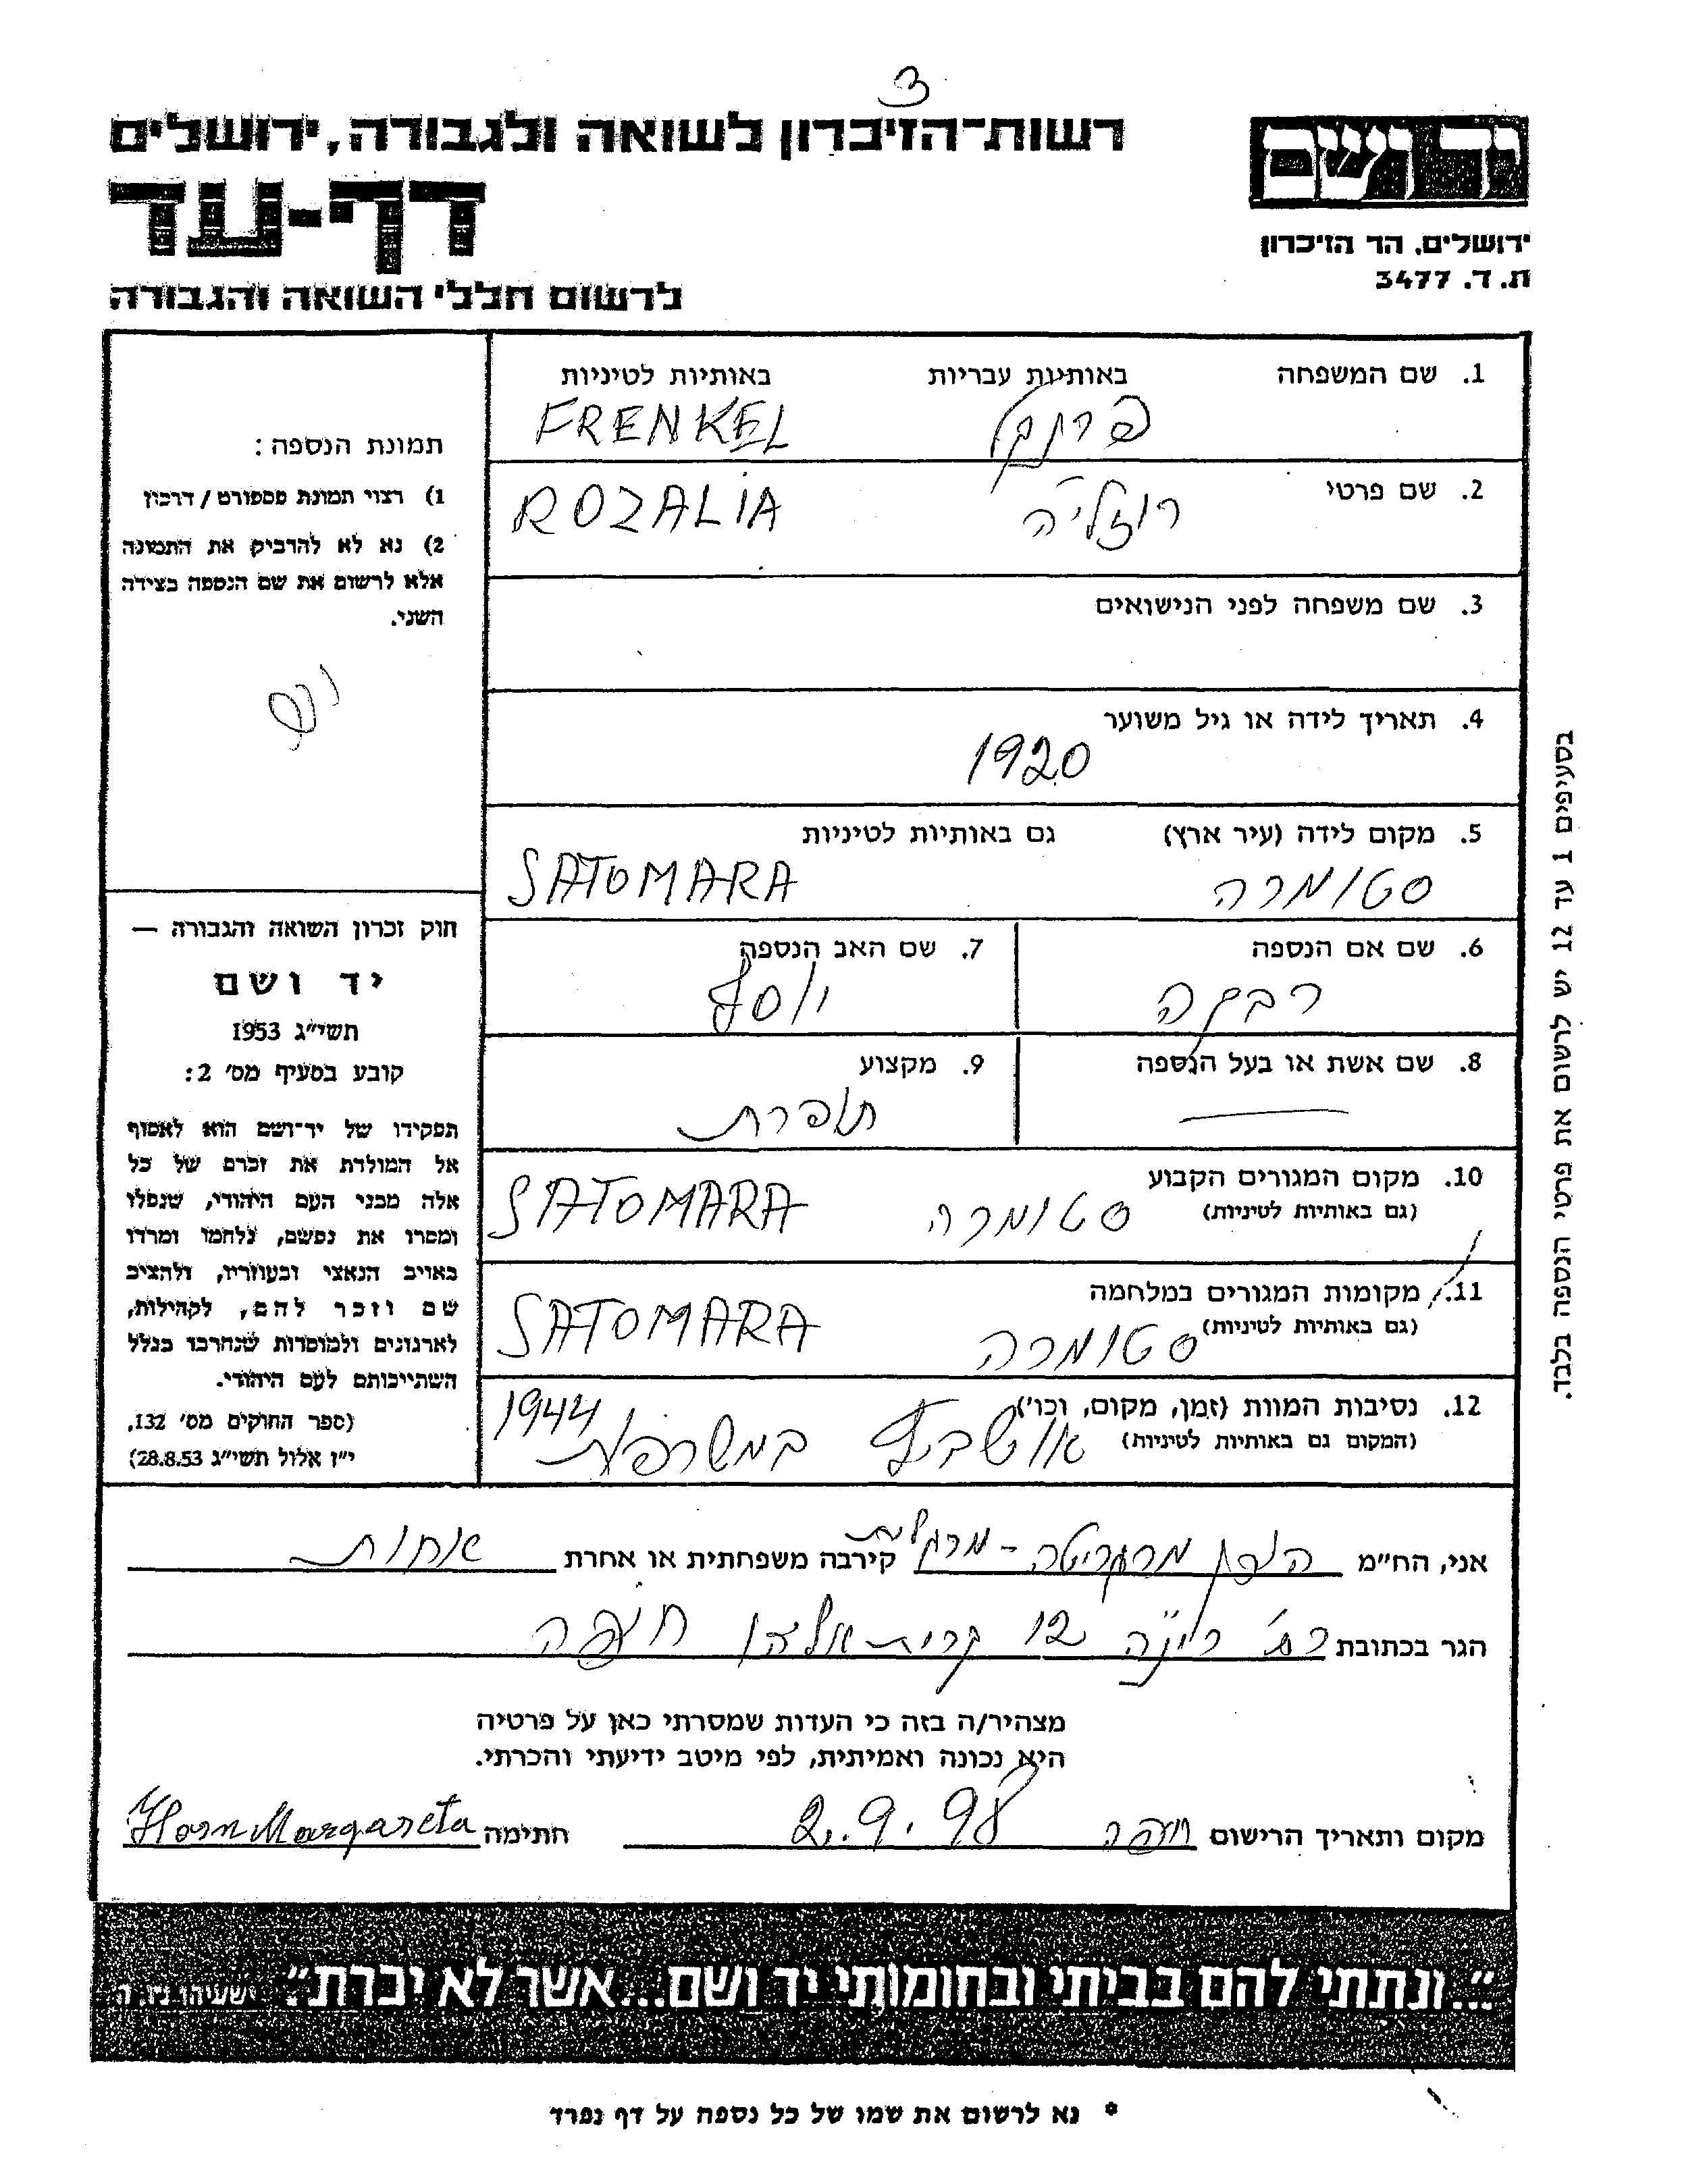 3
רשות-הזיכרון לשואה ולגבורה, ירושלים
דף-עד
לרשום חללי השואה והגבורה
יד ושם
ירושלים, הר הזיכרון
ת. ד. 3477
1. שם המשפחה באותיות עבריות באותיות לטיניות
פרנקל FRENKEL
2. שם פרטי
רוזליה ROZALIA
3. שם משפחה לפני הנישואים
4. תאריך לידה או גיל משוער
1920
5. מקום לידה (עיר ארץ) גם באותיות לטיניות
סטומרה SATOMARA
6. שם אם הנספה 7. שם האב הנספה
רבקה יוסף
8. שם אשת או בעל הנספה 9. מקצוע
— תופרת
10. מקום המגורים הקבוע
(גם באותיות לטיניות) סטומרה SATOMARA
11. מקומות המגורים במלחמה
(גם באותיות לטיניות) סטומרה SATOMARA
12. נסיבות המוות (זמן, מקום, וכו') 1944
(המקום גם באותיות לטיניות) אושביץ במשרפות
תמונת הנספה:
1) רצוי תמונת פספורט / דרכון
2) נא לא להדביק את התמונה
אלא לרשום את שם הנספה בצידה
השני.
חוק זכרון השואה והגבורה —
יד ושם
תשי"ג 1953
קובע בסעיף מס' 2:
תפקידו של יד-ושם הוא לאסוף
אל המולדת את זכרם של כל
אלה מבני העם היהודי, שנפלו
ומסרו את נפשם, נלחמו ומרדו
באויב הנאצי ובעוזריו, ולהציב
שם וזכר להם, לקהילות,
לארגונים ולמוסדות שנחרבו בגלל
השתייכותם לעם היהודי.
(ספר החוקים מס' 132,
י"ז אלול תשי"ג 28.8.53)
בסעיפים 1 עד 12 יש לרשום את פרטי הנספה בלבד.
אני, הח"מ הורן מרגריטה - מרגלית קירבה משפחתית או אחרת אחות
הגר בכתובת רח' 12 קרית חיפה
מצהיר/ה בזה כי העדות שמסרתי כאן על פרטיה
היא נכונה ואמיתית, לפי מיטב ידיעתי והכרתי.
מקום ותאריך הרישום חיפה 2.9.98 חתימה Horn Margareta
"...ונתתי להם בביתי ובחומותי יד ושם...אשר לא יכרת" ישעיהו נו, ה
* נא לרשום את שמו של כל נספה על דף נפרד